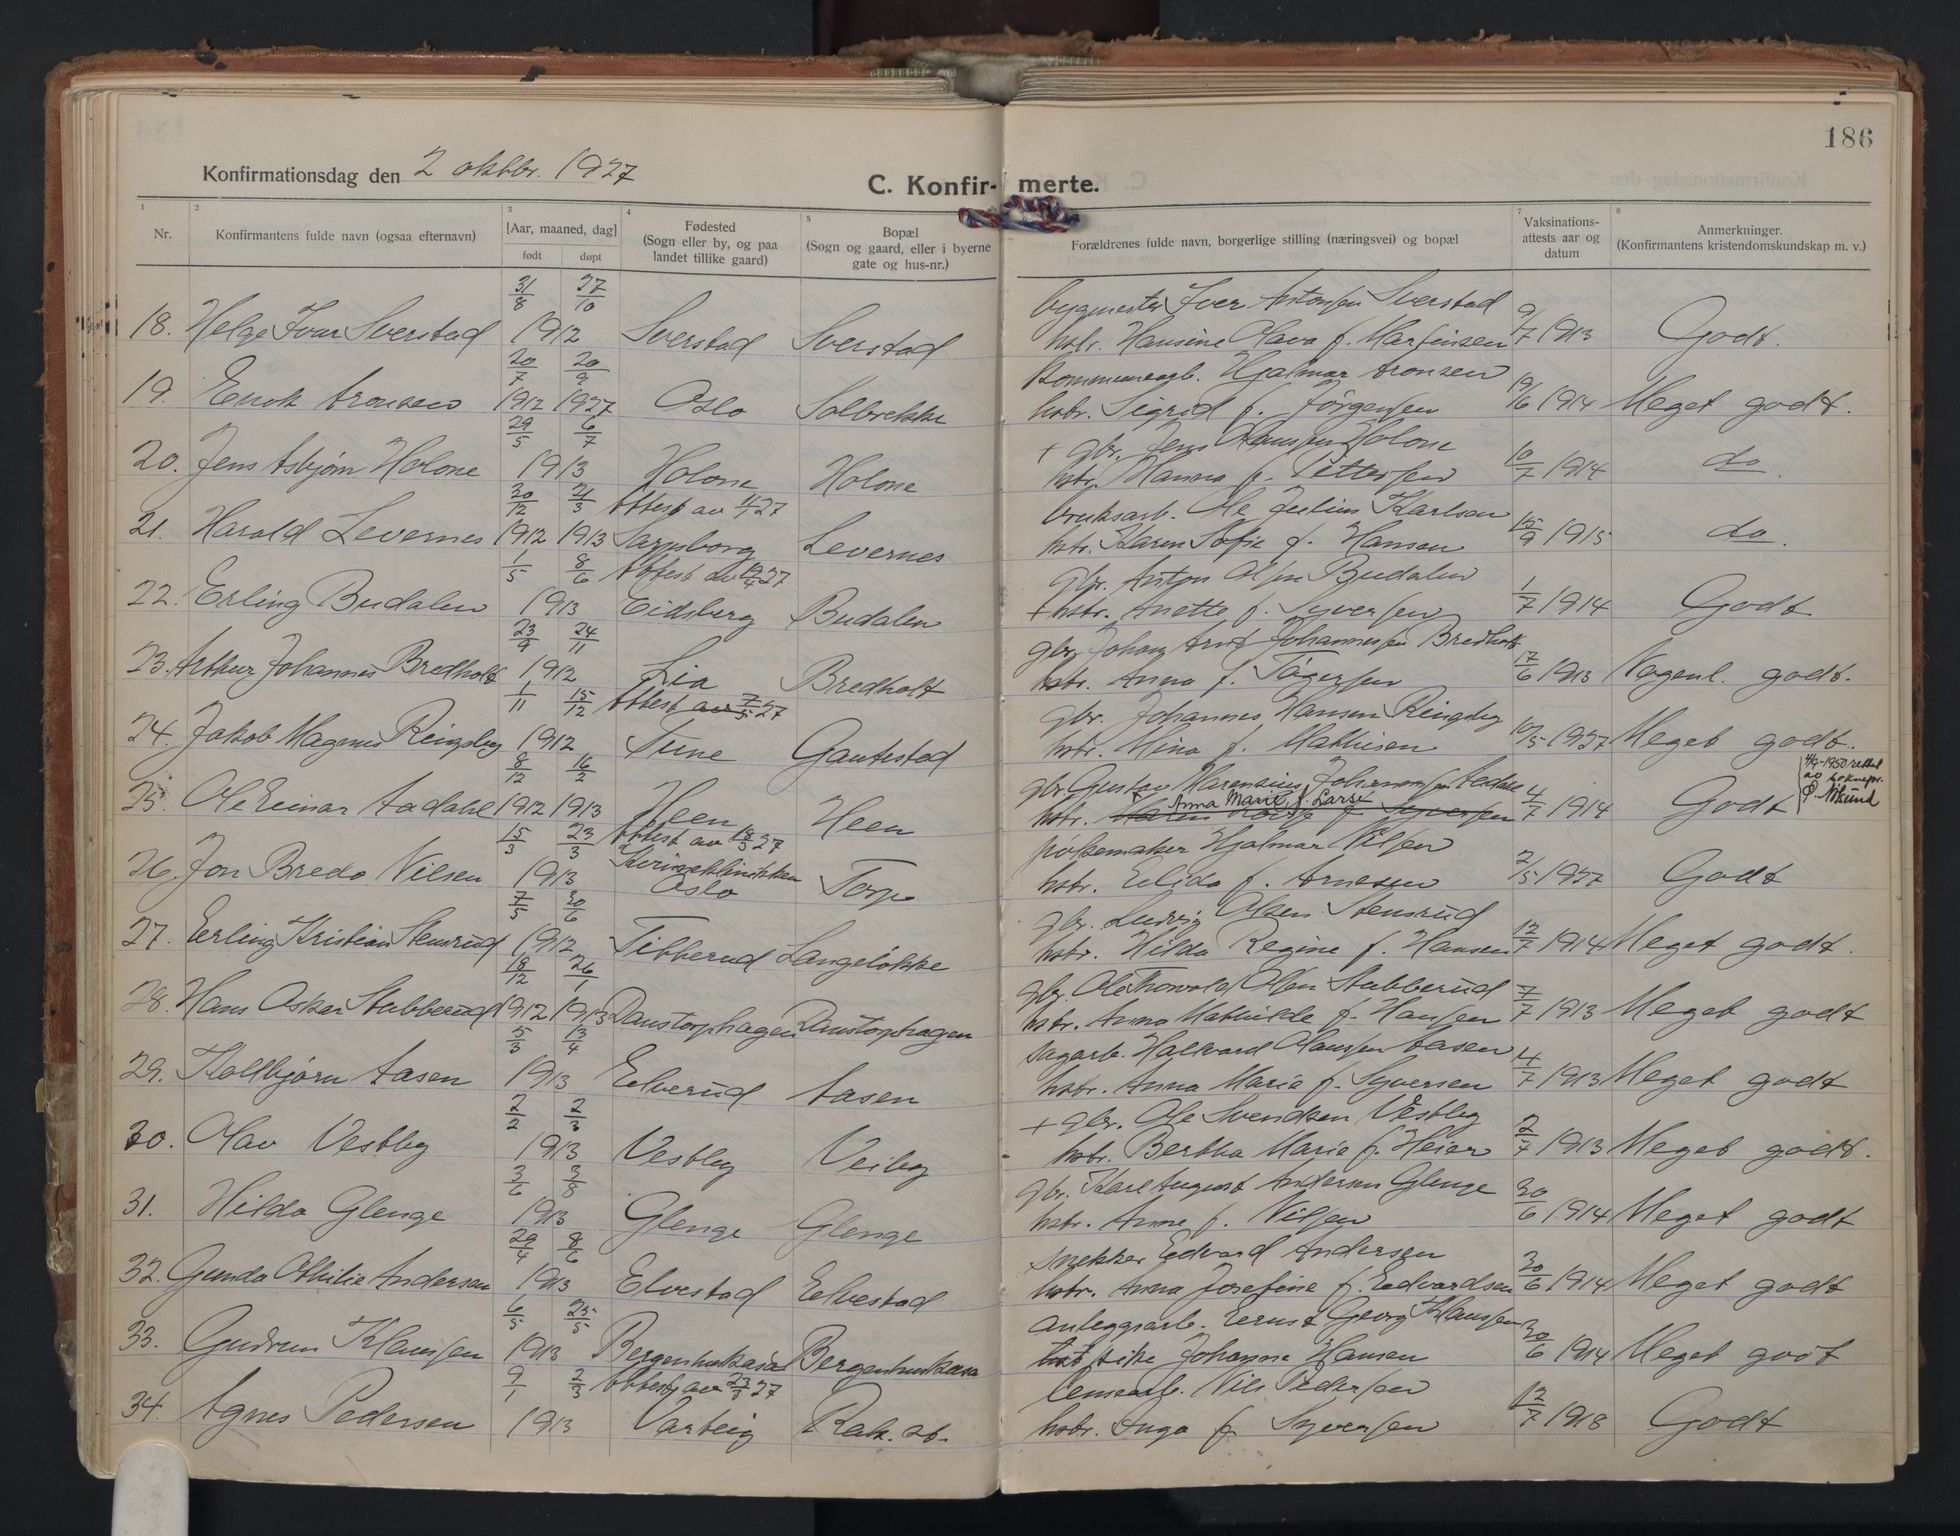 186
Konfirmationsdag den 2 oktbr. 1927
C. Konfir- merte.
1 2 3 4 5 7 8
Nr. Konfirmantens fulde navn (ogsaa efternavn) [Aar, maaned, dag] født døpt Fødested (Sogn eller by, og paa landet tillike gaard) Bopæl (Sogn og gaard, eller i byerne gate og hus-nr.) Forældrenes fulde navn, borgerlige stilling (næringsvei) og bopæl Vaksinations-attests aar og datum Anmerkninger. (Konfirmantens kristendomskundskap m. v.)
31/8 27/10 bygmester Iver Antonsen Sverstad
18. Helge Ivar Sverstad 1912 Sverstad Sverstad hstr. Hansine Olava f. Martinsen 9/7 1913 Godt.
20/7 20/9 Kommunearb. Hjalmar Aronsen
19. Enok Aronsen 1912 1927 Oslo Solbrekke hstr. Sigrid f. Jörgensen 19/6 1914 Meget godt.
29/5 6/7 + gbr. Jens Hansen Holone
20. Jens Asbjørn Holone 1913 Holone Holone hstr. Hanna f. Pettersen 10/7 1914 do.
30/12 21/3 Attest av 11/1 27 bruksarb. Ole Julius Karlsen
21. Harald Levernes 1912 1913 Sarpsborg Levernes hstr. Karen Sofie f. Hansen 15/9 1915 do.
1/5 8/6 Attest av 19/4 27 gbr. Anton Olsen Budalen
22. Erling Budalen 1913 Eidsberg Budalen + hstr. Anette f. Syversen 1/7 1914 Godt
23/9 24/11 gbr. Johan Arnt Johannessen Bredholt
23. Arthur Johannes Bredholt 1912 Lia Bredholt hstr. Anna f. Tögersen 17/6 1913 Nogenl. godt.
1/11 15/12 Attest av 7/5 27 gbr. Johannes Hansen Ringsby
24. Jakob Magnus Ringsby 1912 Tune Gautestad hstr. Mina f. Mathisen 10/5 1927 Meget godt.
8/12 16/2 gbr. Gustav Marensius Johannessen Aadahl
25. Ole Einar Aadahl 1912 1913 Heen Heen hstr. Anna Marie f. Larse 4/7 1914 Godt
15/3 23/3 Attest av 18/3 27 pølsemaker Hjalmar Nilsen
26. Jon Bredo Nilsen 1913 Kvinneklinikken Oslo Torp hstr. Elida f. Arnesen 2/5 1927 Godt
7/5 30/6 gbr. Ludvig Olsen Stensrud
27. Erling Kristian Stensrud 1912 Tibberud Langeløkke hstr. Hilda Regine f. Hansen 12/7 1914 Meget godt.
18/12 26/1 gbr. Ole Thorvald Olsen Stubberud
28. Hans Oskar Stubberud 1912 1913 Danstorphagen Danstorphagen hstr. Anna Mathilde f. Hansen 7/7 1913 Meget godt
5/3 13/4 sagarb. Hallvard Hansen Aasen
29. Kolbjørn Aasen 1913 Elverud Aasen hstr. Anna Marie f. Syversen 4/7 1913 Meget godt
2/2 2/3 + gbr. Ole Svendsen Vestby
30. Olav Vestby 1913 Vestby Veiby hstr. Bertha Marie f. Heier 2/7 1913 Meget godt.
3/6 3/8 gbr. Karl August Andersen Glenge
31. Hilda Glenge 1913 Glenge Glenge hstr. Anne f. Nilsen 30/6 1914 Meget godt
29/4 8/6 snekker Edvard Andersen
32. Gunda Othilie Andersen 1913 Elvestad Elvestad hstr. Anna Josefine f. Edvardsen 30/6 1914 Meget godt
6/5 25/5 anleggsarb. Ernst Georg Klausen
33. Gudrun Klausen 1913 Bergenhuskasa Bergenhuskasa pike Johanne Hansen 30/6 1914 Meget godt
9/1 2/3 Attest av 23/3 27 Nils Pedersen
34. Agnes Pedersen 1913 Varteig Rak. st. hstr. Inga f. Syversen 12/7 1918 Godt